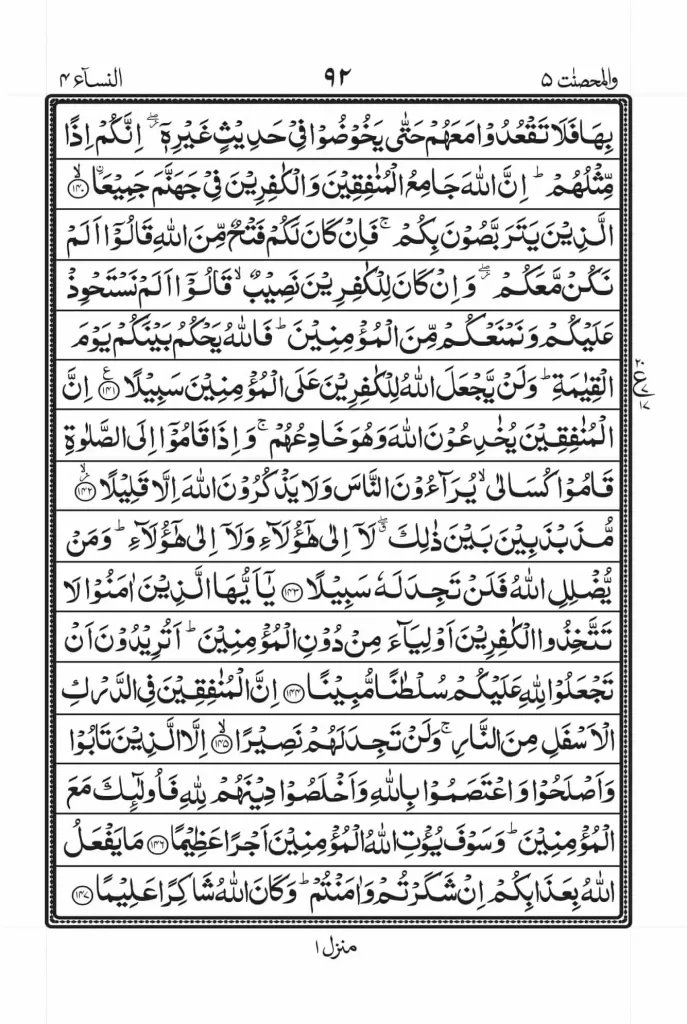 والمحصنٰت ۵ ۹۲ النسآء ۴
بِهَا فَلَا تَقْعُدُوْا مَعَهُمْ حَتّٰى يَخُوْضُوْا فِيْ حَدِيْثٍ غَيْرِهٖۤ ۖ اِنَّكُمْ اِذًا
مِّثْلُهُمْ ؕ اِنَّ اللّٰهَ جَامِعُ الْمُنٰفِقِيْنَ وَالْكٰفِرِيْنَ فِيْ جَهَنَّمَ جَمِيْعًا ۙ‏﴿۱۴۰﴾
الَّذِيْنَ يَتَرَبَّصُوْنَ بِكُمْ ۚ فَاِنْ كَانَ لَكُمْ فَتْحٌ مِّنَ اللّٰهِ قَالُوْۤا اَلَمْ
نَكُنْ مَّعَكُمْ ۖ وَاِنْ كَانَ لِلْكٰفِرِيْنَ نَصِيْبٌ ۙ قَالُوْۤا اَلَمْ نَسْتَحْوِذْ
عَلَيْكُمْ وَنَمْنَعْكُمْ مِّنَ الْمُؤْمِنِيْنَ ؕ فَاللّٰهُ يَحْكُمُ بَيْنَكُمْ يَوْمَ
الْقِيٰمَةِ ؕ وَلَنْ يَّجْعَلَ اللّٰهُ لِلْكٰفِرِيْنَ عَلَى الْمُؤْمِنِيْنَ سَبِيْلًا ﴿۱۴۱﴾ ع اِنَّ
۲۰ ع ۷ ۱۷
الْمُنٰفِقِيْنَ يُخٰدِعُوْنَ اللّٰهَ وَهُوَ خَادِعُهُمْ ۚ وَاِذَا قَامُوْۤا اِلَى الصَّلٰوةِ
قَامُوْا كُسَالٰى ۙ يُرَآءُوْنَ النَّاسَ وَلَا يَذْكُرُوْنَ اللّٰهَ اِلَّا قَلِيْلًا ﴿۱۴۲﴾
مُّذَبْذَبِيْنَ بَيْنَ ذٰلِكَ ۖ لَاۤ اِلٰى هٰٓؤُلَآءِ وَلَاۤ اِلٰى هٰٓؤُلَآءِ ؕ وَمَنْ
يُّضْلِلِ اللّٰهُ فَلَنْ تَجِدَ لَهٗ سَبِيْلًا ﴿۱۴۳﴾ يٰۤاَيُّهَا الَّذِيْنَ اٰمَنُوْا لَا
تَتَّخِذُوا الْكٰفِرِيْنَ اَوْلِيَآءَ مِنْ دُوْنِ الْمُؤْمِنِيْنَ ؕ اَتُرِيْدُوْنَ اَنْ
تَجْعَلُوْا لِلّٰهِ عَلَيْكُمْ سُلْطٰنًا مُّبِيْنًا ﴿۱۴۴﴾ اِنَّ الْمُنٰفِقِيْنَ فِي الدَّرْكِ
الْاَسْفَلِ مِنَ النَّارِ ۚ وَلَنْ تَجِدَ لَهُمْ نَصِيْرًا ۙ﴿۱۴۵﴾ اِلَّا الَّذِيْنَ تَابُوْا
وَاَصْلَحُوْا وَاعْتَصَمُوْا بِاللّٰهِ وَاَخْلَصُوْا دِيْنَهُمْ لِلّٰهِ فَاُولٰٓئِكَ مَعَ
الْمُؤْمِنِيْنَ ؕ وَسَوْفَ يُؤْتِ اللّٰهُ الْمُؤْمِنِيْنَ اَجْرًا عَظِيْمًا ﴿۱۴۶﴾ مَا يَفْعَلُ
اللّٰهُ بِعَذَابِكُمْ اِنْ شَكَرْتُمْ وَاٰمَنْتُمْ ؕ وَكَانَ اللّٰهُ شَاكِرًا عَلِيْمًا ﴿۱۴۷﴾
منزل ۱